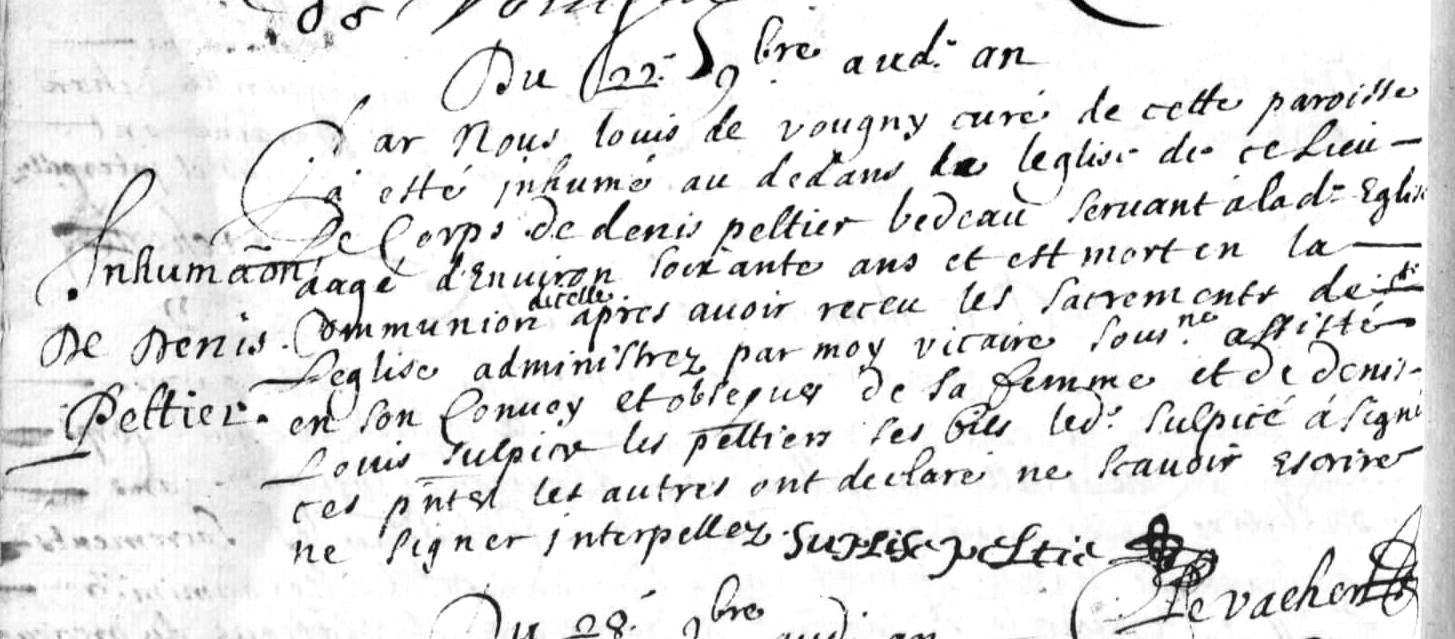 Du 22e 9bre aud. an
Par Nous louis de vougny curé de cette paroisse
a esté jnhumé au dedans de leglise de ce Lieu
Le Corps de denis peltier bedeau servant a lad. Eglise
aagé d'Environ soixante ans et est mort en la
Communion dicelle apres avoir receu les sacrements de
Leglise administrez par moy vicaire sousne. assisté
en son Convoy et obseques de sa femme et de denis
Louis sulpice les peltiers ses fils led. sulpice á signé
ces pntes les autres ont declaré ne scavoir escrire
ne signer jnterpellez. Suplise peltie
Inhumãon
De Denis
Peltier.
Levacher
Du 28. 9bre aud. an